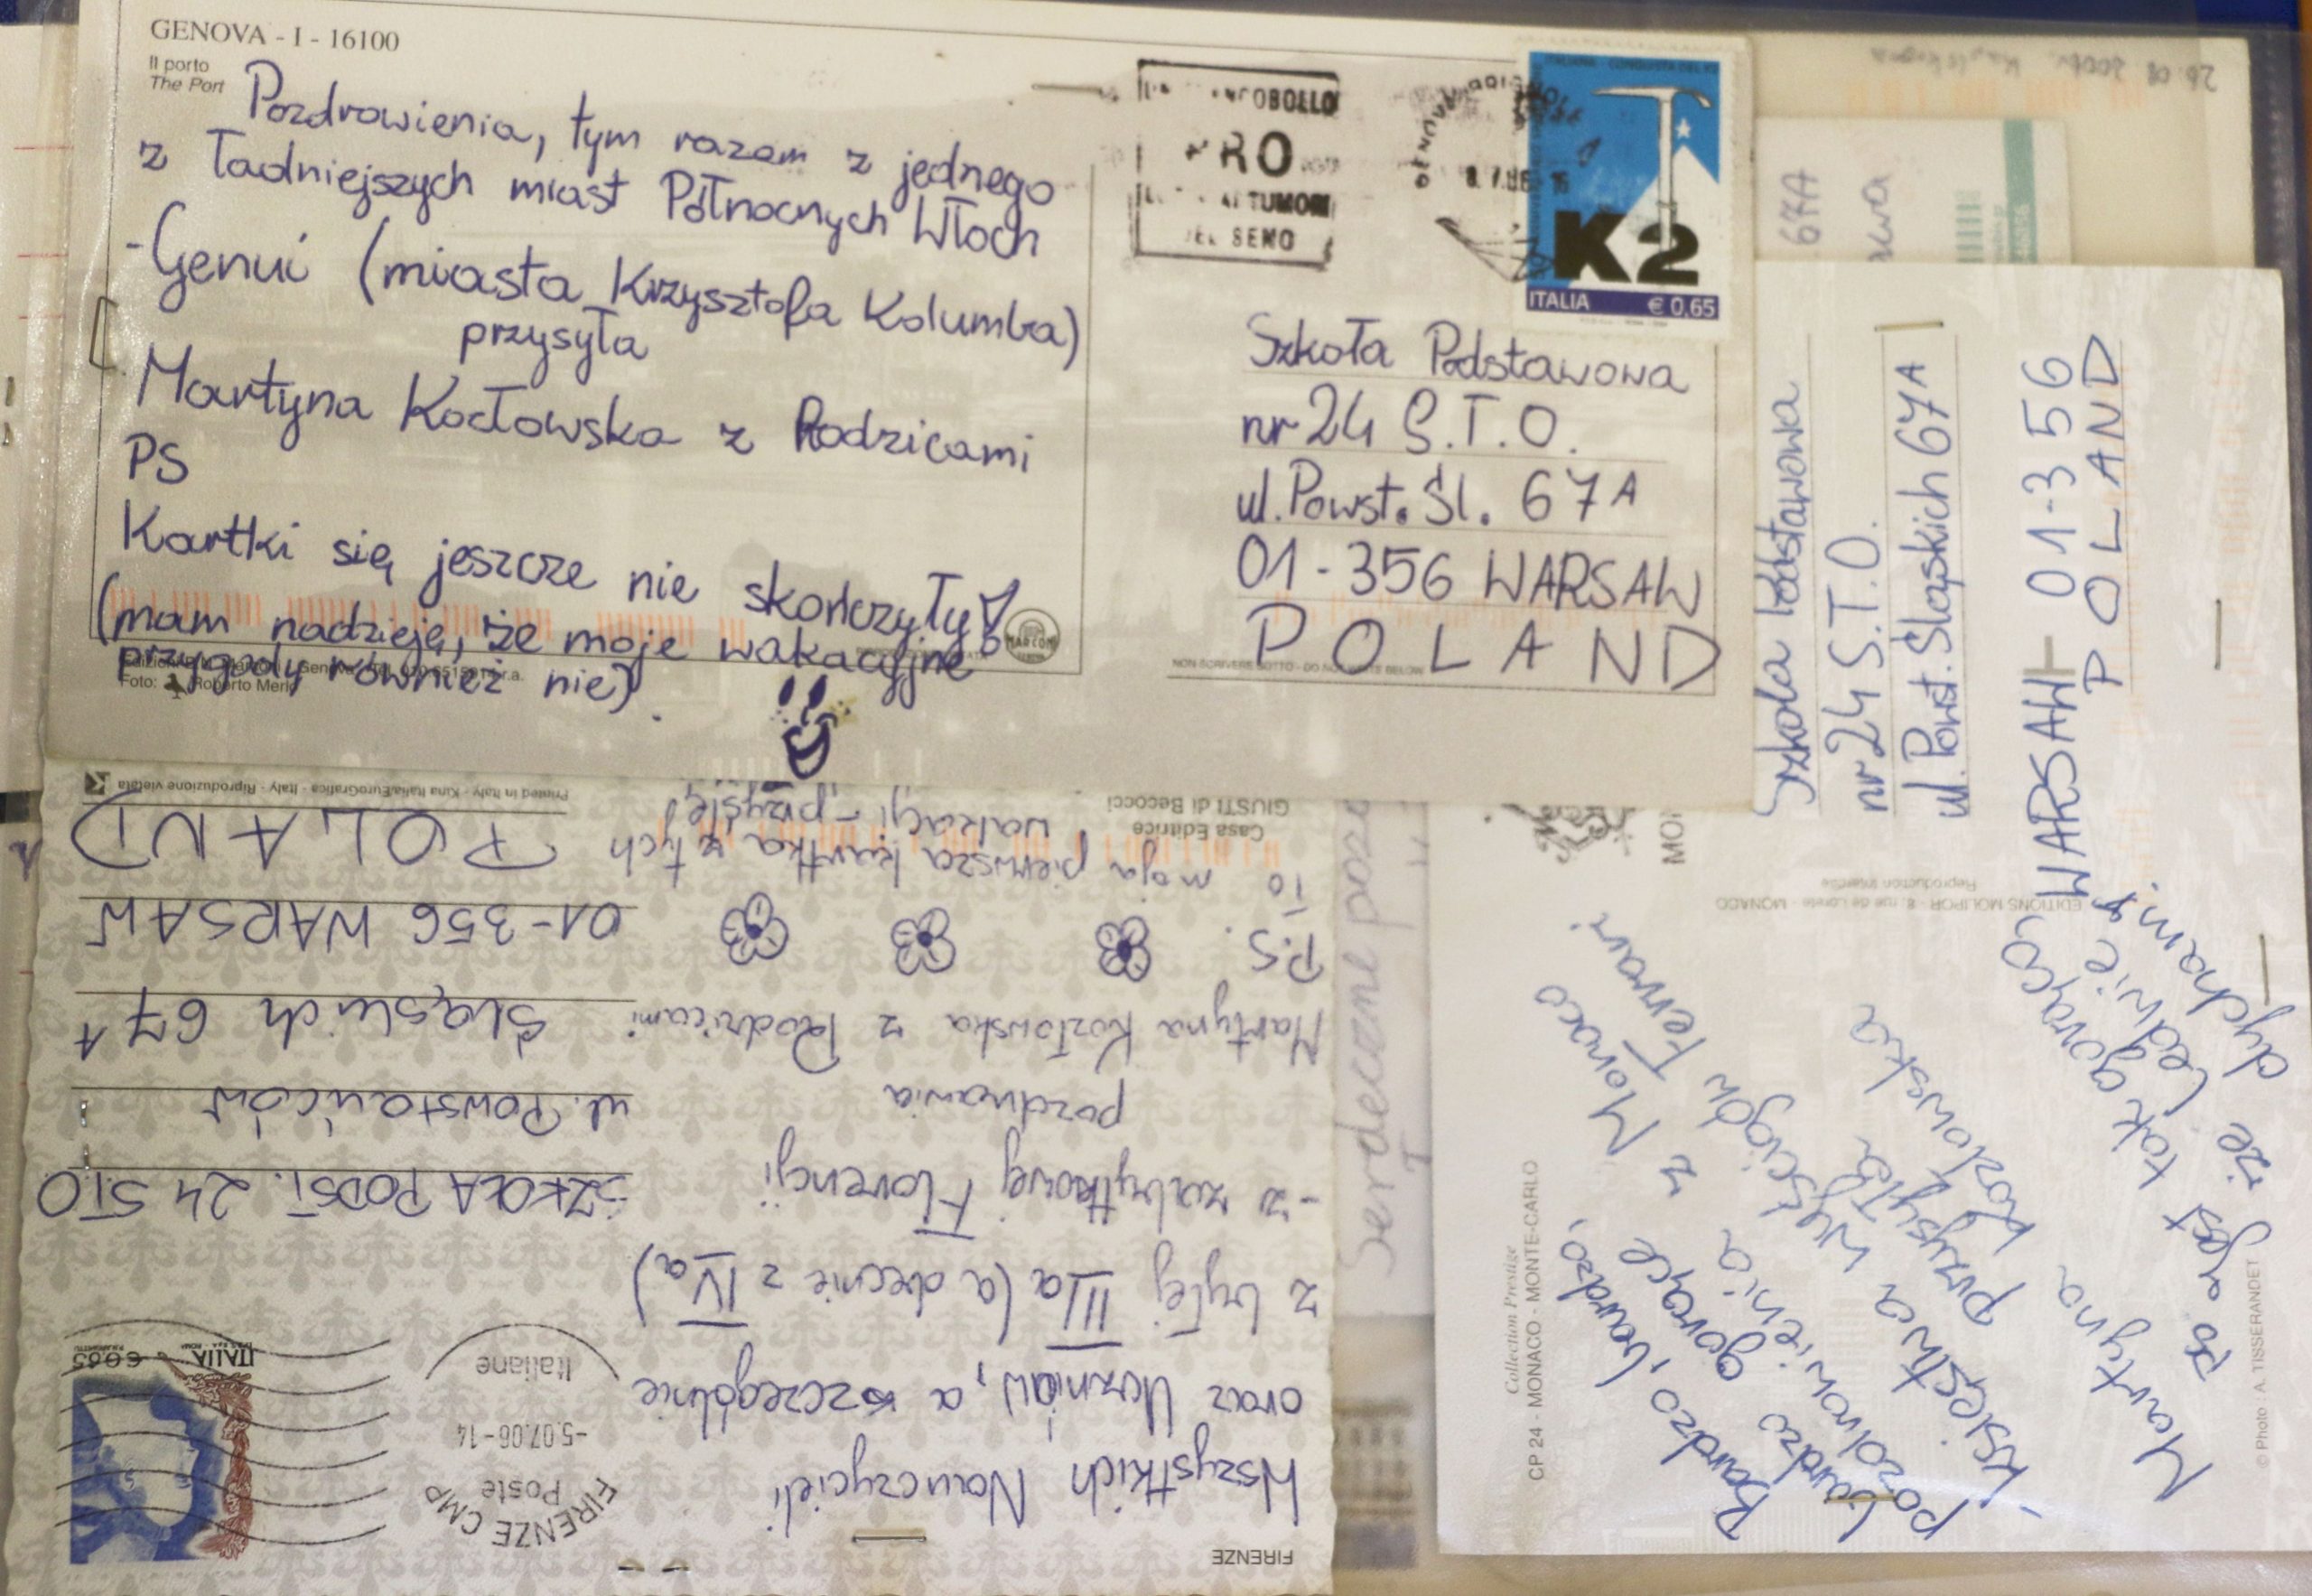 GENOVA - I - 16100
Il porto
The Port
Pozdrowienia, tym razem z jednego
z ładniejszych miast Północnych Włoch
-Genui (miasta Krzysztofa Kolumba)
przysyła
Martyna Kozłowska z Rodzicami
PS
Kartki się jeszcze nie skończyły!
(mam nadzieję, że moje wakacyjne
przygody również nie).
Foto: Roberto Merlo
MARCONI
NON SCRIVERE SOTTO - DO NOT WRITE BELOW
PRO
TUMORI
DEL SENO
K2
ITALIA € 0,65
Szkoła Podstawowa
nr 24 S.T.O.
ul. Powst. Śl. 67A
01-356 WARSAW
POLAND
67A
Szkoła Podstawowa
nr 24 S.T.O.
ul. Powst. Śląskich 67A
WARSAW 01-356
POLAND
FIRENZE
Wszystkich Nauczycieli
oraz Uczniów, a szczególnie
z byłej IIIa (a obecnie z IVa)
- z zabytkowej Florencji
pozdrawia
Martyna Kozłowska z Rodzicami
P.S.
To moja pierwsza kartka z tych
wakacji - przysięgę!
Casa Editrice
GIUSTI di Becocci
FIRENZE CMP
Poste
-5.07.06-14
Italiane
ITALIA
€0,65
SZKOŁA PODST. 24 STO
ul. Powstańców
Śląskich 67A
01-356 WARSAW
POLAND
Printed in Italy - Kina Italia/EuroGrafica - Italy - Riproduzione vietata
Serdeczne
Collection Prestige
CP 24 - MONACO - MONTE-CARLO
Bardzo, bardzo,
bardzo gorące
pozdrowienia z Monaco
- księstwa wyścigów Ferrari
przysyła
Martyna Kozłowska
PS Jest tak gorąco,
że ledwie
dycham!
EDITIONS MOLIPOR - 8, rue de Lorete - MONACO
Reproduction Interdite
© Photo A. TISSERANDET